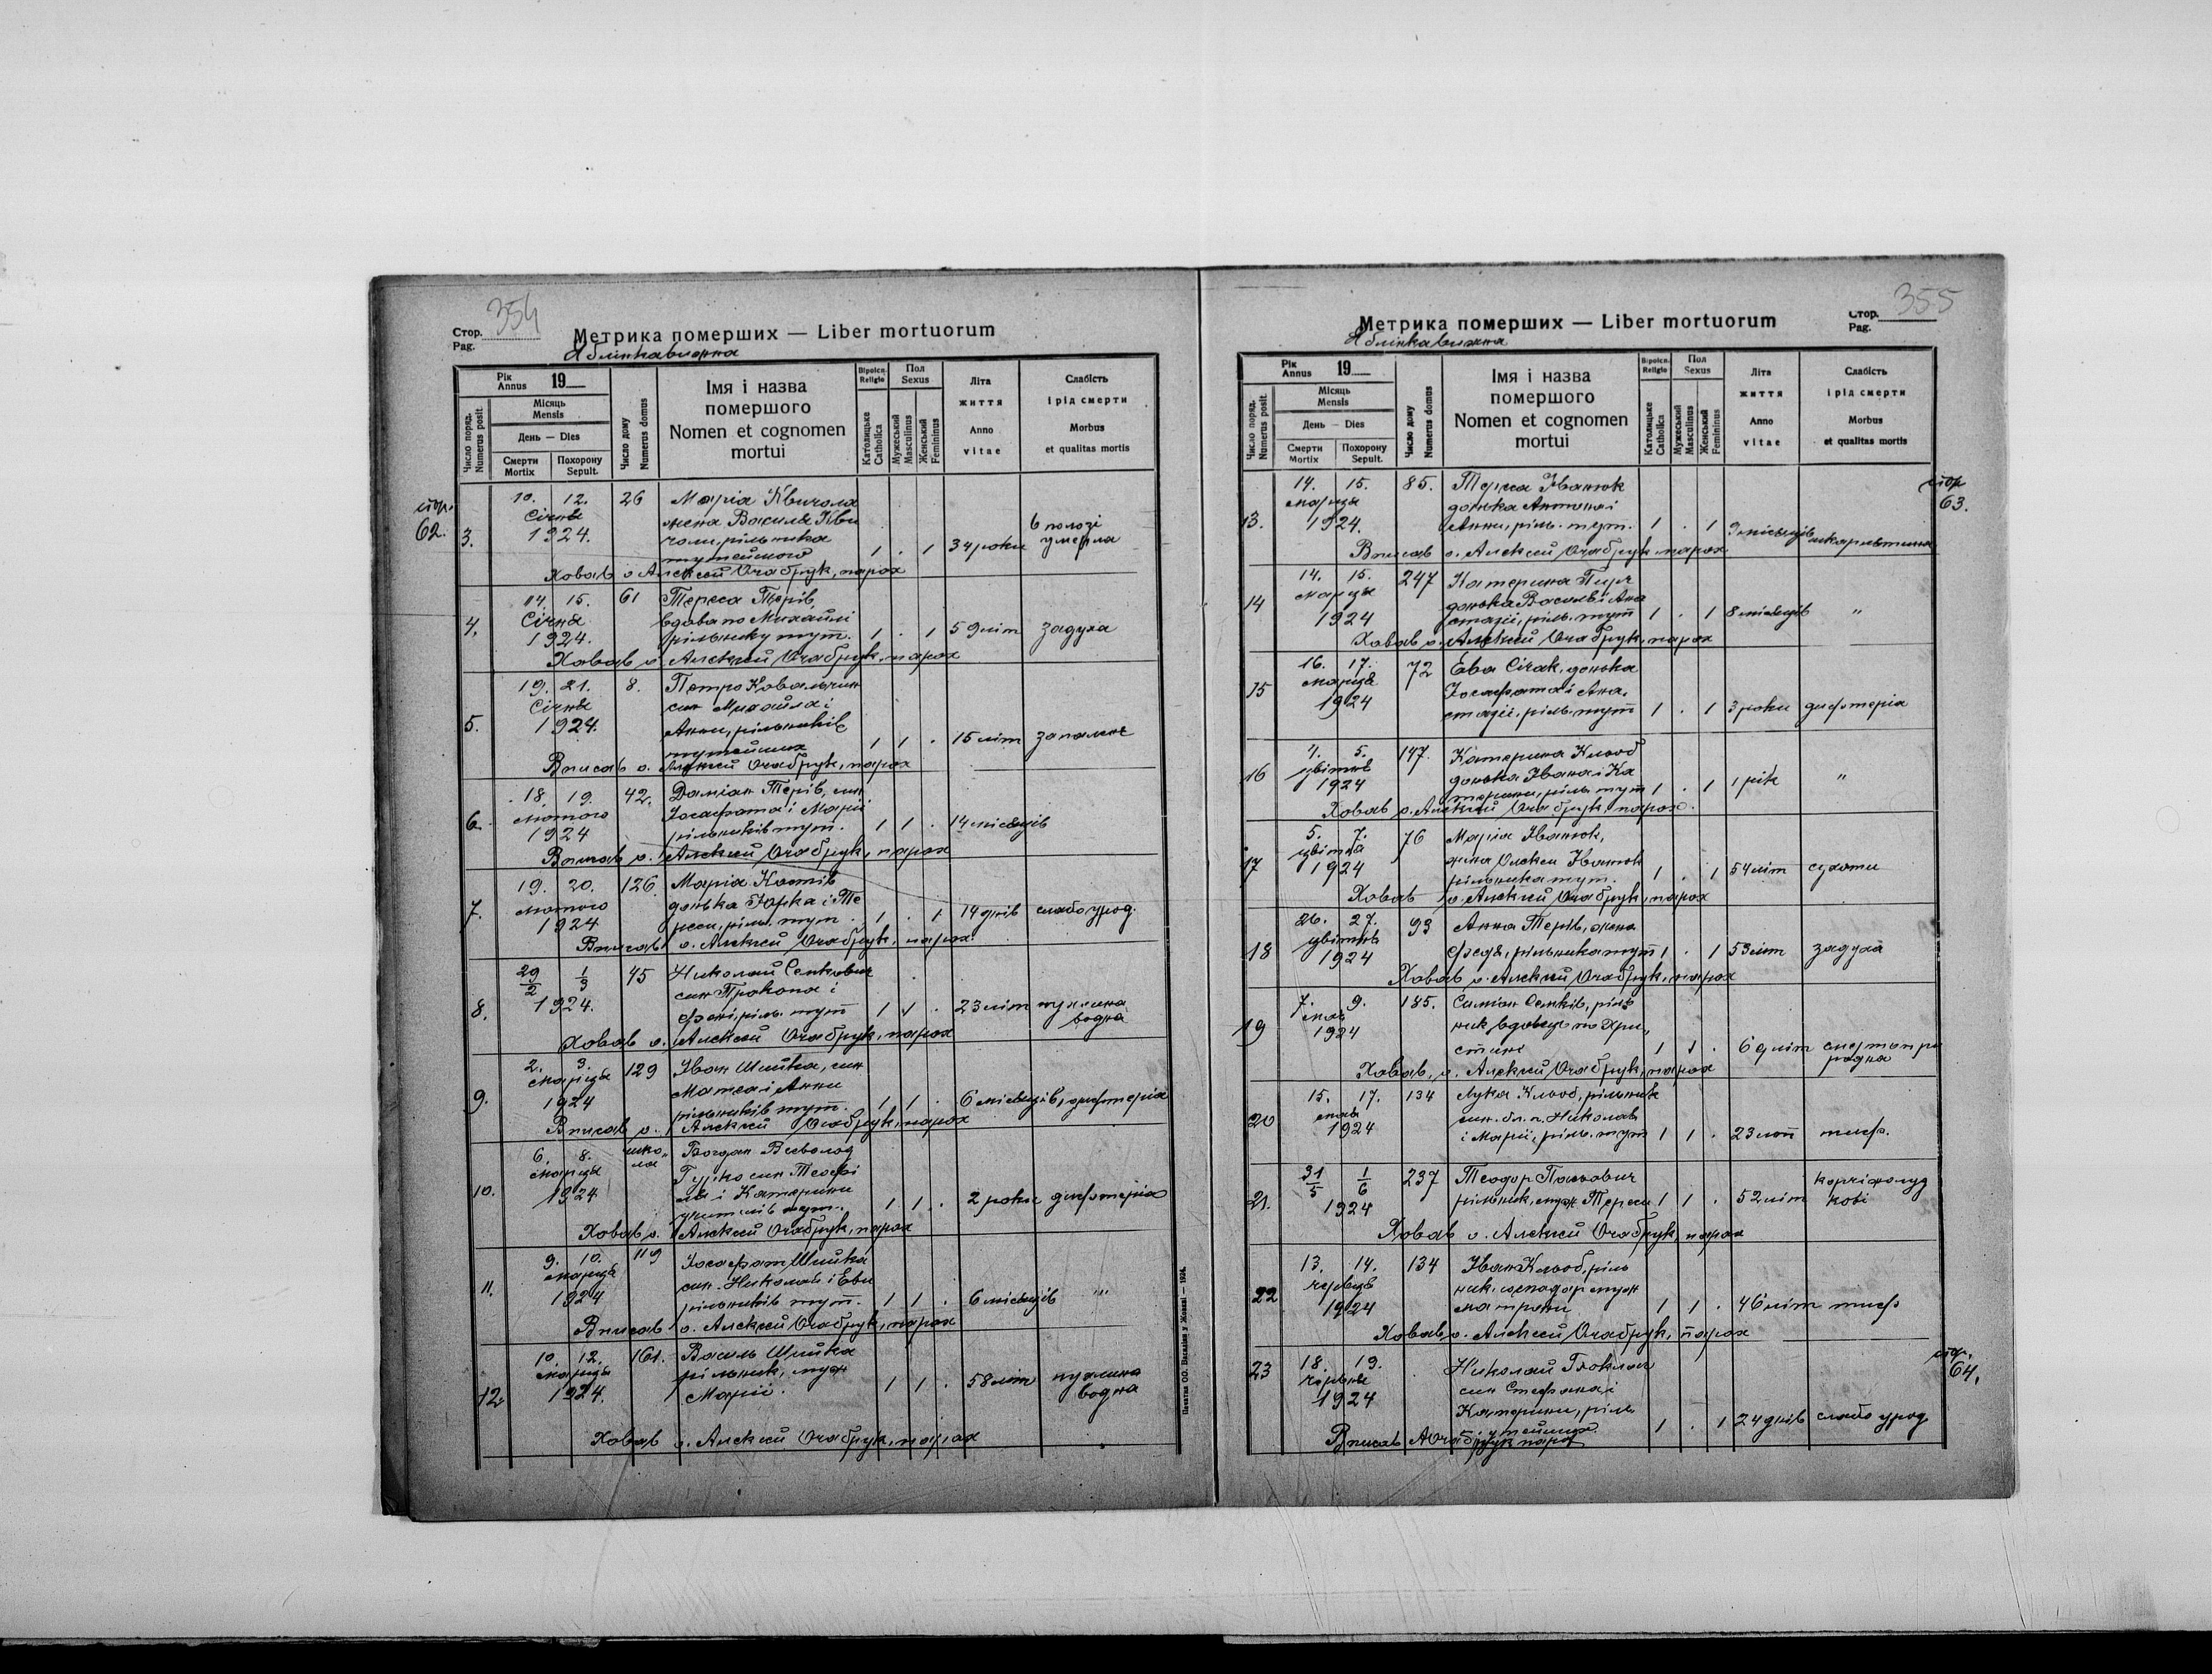 354
Стор.
Pag.
Метрика померших — Liber mortuorum
Яблінка вижна
Рік Annus 19
Місяць Mensis
День — Dies
Число поряд. Numerus posit.
Смерти Mortix
Похорону Sepult.
Число дому Numerus domus
Імя і назва помершого
Nomen et cognomen mortui
Віроісп. Religio
Католицьке Catholica
Пол Sexus
Мужеський Masculinus
Женський Femininus
Літа життя
Anno vitae
Слабість і рід смерти
Morbus et qualitas mortis
стор. 62.
3. 10. 12. 26 Марія Квичола
Січня жена Василя Кви
1924. чоли, рільника
тутейшого 1 . 1 34 роки в полозі умерла
Ховав о Алексій Очабрук, парох
4. 14. 15. 61 Тереса Терів,
Січня вдова по Михайлі
1924. рільнику тут. 1 . 1 59 літ задуха
Ховав о. Алексій Очабрук, парох
5. 19. 21. 8. Петро Ковальчин
Січня син Михайла і
1924. Анни, рільників
тутейших 1 1 . 15 літ
Вписав о. Алексій Очабрук, парох
6. 18. 19. 42. Даміян Терів, син
лютого Йосафата і Марії
1924 рільників тут. 1 1 . 14 місяців
Вписав о. Алексій Очабрук, парох
7. 19. 20. 126. Марія Костів
лютого донька Юрка і Те
1924 реси, ріль. тут. 1 . 1 14 днів слабо урод.
Вписав о. Алексій Очабрук, парох
8. 29/2 1/3 45 Николай Сенкович
син Прокопа і
1924. Фені, ріль. тут 1 1 . 23 літ пухлина водна
Ховав о. Алексій Очабрук, парох
9. 2. 3. 129 Іван Шийка, син
марця Матея і Анни
1924 рільників тут. 1 1 . 6 місяців, дифтерія
Вписав о. Алексій Очабрук, парох
10. 6. 8. школа Богдан Всеволод
марця Гурко син Теофі
1924 ля і Катерини
учителів тут. 1 1 . 2 роки дифтерія
Ховав о. Алексій Очабрук, парох
11. 9. 10. 119 Йосафат Шийка
марця син Николая і Еви
1924 рільників тут. 1 1 . 6 місяців "
Вписав о. Алексій Очабрук, парох
12. 10. 12. 161. Василь Шийка
марця рільник, муж
1924. Марії. 1 1 . 58 літ пухлина водна
Ховав о. Алексій Очабрук, парох
Печатня ОО. Василіян у Жовкві — 1924.
355
Стор.
Pag.
Метрика померших — Liber mortuorum
Яблінка вижна
Рік Annus 19
Місяць Mensis
День — Dies
Число поряд. Numerus posit.
Смерти Mortix
Похорону Sepult.
Число дому Numerus domus
Імя і назва помершого
Nomen et cognomen mortui
Віроісп. Religio
Католицьке Catholica
Пол Sexus
Мужеський Masculinus
Женський Femininus
Літа життя
Anno vitae
Слабість і рід смерти
Morbus et qualitas mortis
стор 63.
13. 14. 15. 85. Іванюк
марця донька Антона і
1924. Анни, ріль. тут. 1 . 1 9 місяців шкарлятина
Вписав о. Алексій Очабрук, парох
14 14. 15. 247 Катерина Пирч
марця донька Василя і Ана
1924 стазії, ріль. тут 1 . 1 8 місяців "
Ховав о. Алексій Очабрук, парох
15 16. 17. 72 Ева Січак, донька
марця Йосафата і Ана
1924 стазії, ріль. тут 1 . 1 3 роки дифтерія
16 4. 5. 147. Катерина Клюб
цвітня донька Івана і Ка
1924 терини, ріль. тут 1 . 1 1 рік "
Ховав о. Алексій Очабрук, парох.
17 5. 7. 76 Марія Іванюк,
цвітня жена Олекси Іванюк
1924 рільника тут. 1 . 1 54 літ сухоти
Ховав о. Алексій Очабрук, парох
18 26. 27. 93 Анна Терів, жена
цвітня Федя, рільника тут 1 . 1 53 літ задуха
1924
Ховав о. Алексій Очабрук, парох
19 7. 9. 185. Симіон Сенків, ріль
мая ник вдовець по Хри
1924 стині 1 1 . 69 літ смерть природна
Ховав, о. Алексій Очабрук, парох
20 15. 17. 134 Лука Клюб, рільник
мая син бл. п. Николая
1924 і Марії, ріль. тут 1 1 . 23 літ тиф.
21. 31/5 1/6 237 Теодор Павлович
1924 рільник, муж Тереси 1 1 . 52 літ корчі жолудкові
Ховав о. Алексій Очабрук, парох
22 13. 14. 134 Іван Клюб, ріль
червця ник, господар муж
1924 Матрони 1 1 . 46 літ тиф
Ховав о. Алексій Очабрук, парох
стор. 64.
23 18. 19. Николай
червня син Стефана і
1924 Катерини, ріль.
тутейших 1 . 1 24 днів слабо урод
Вписав АОчабрук парох